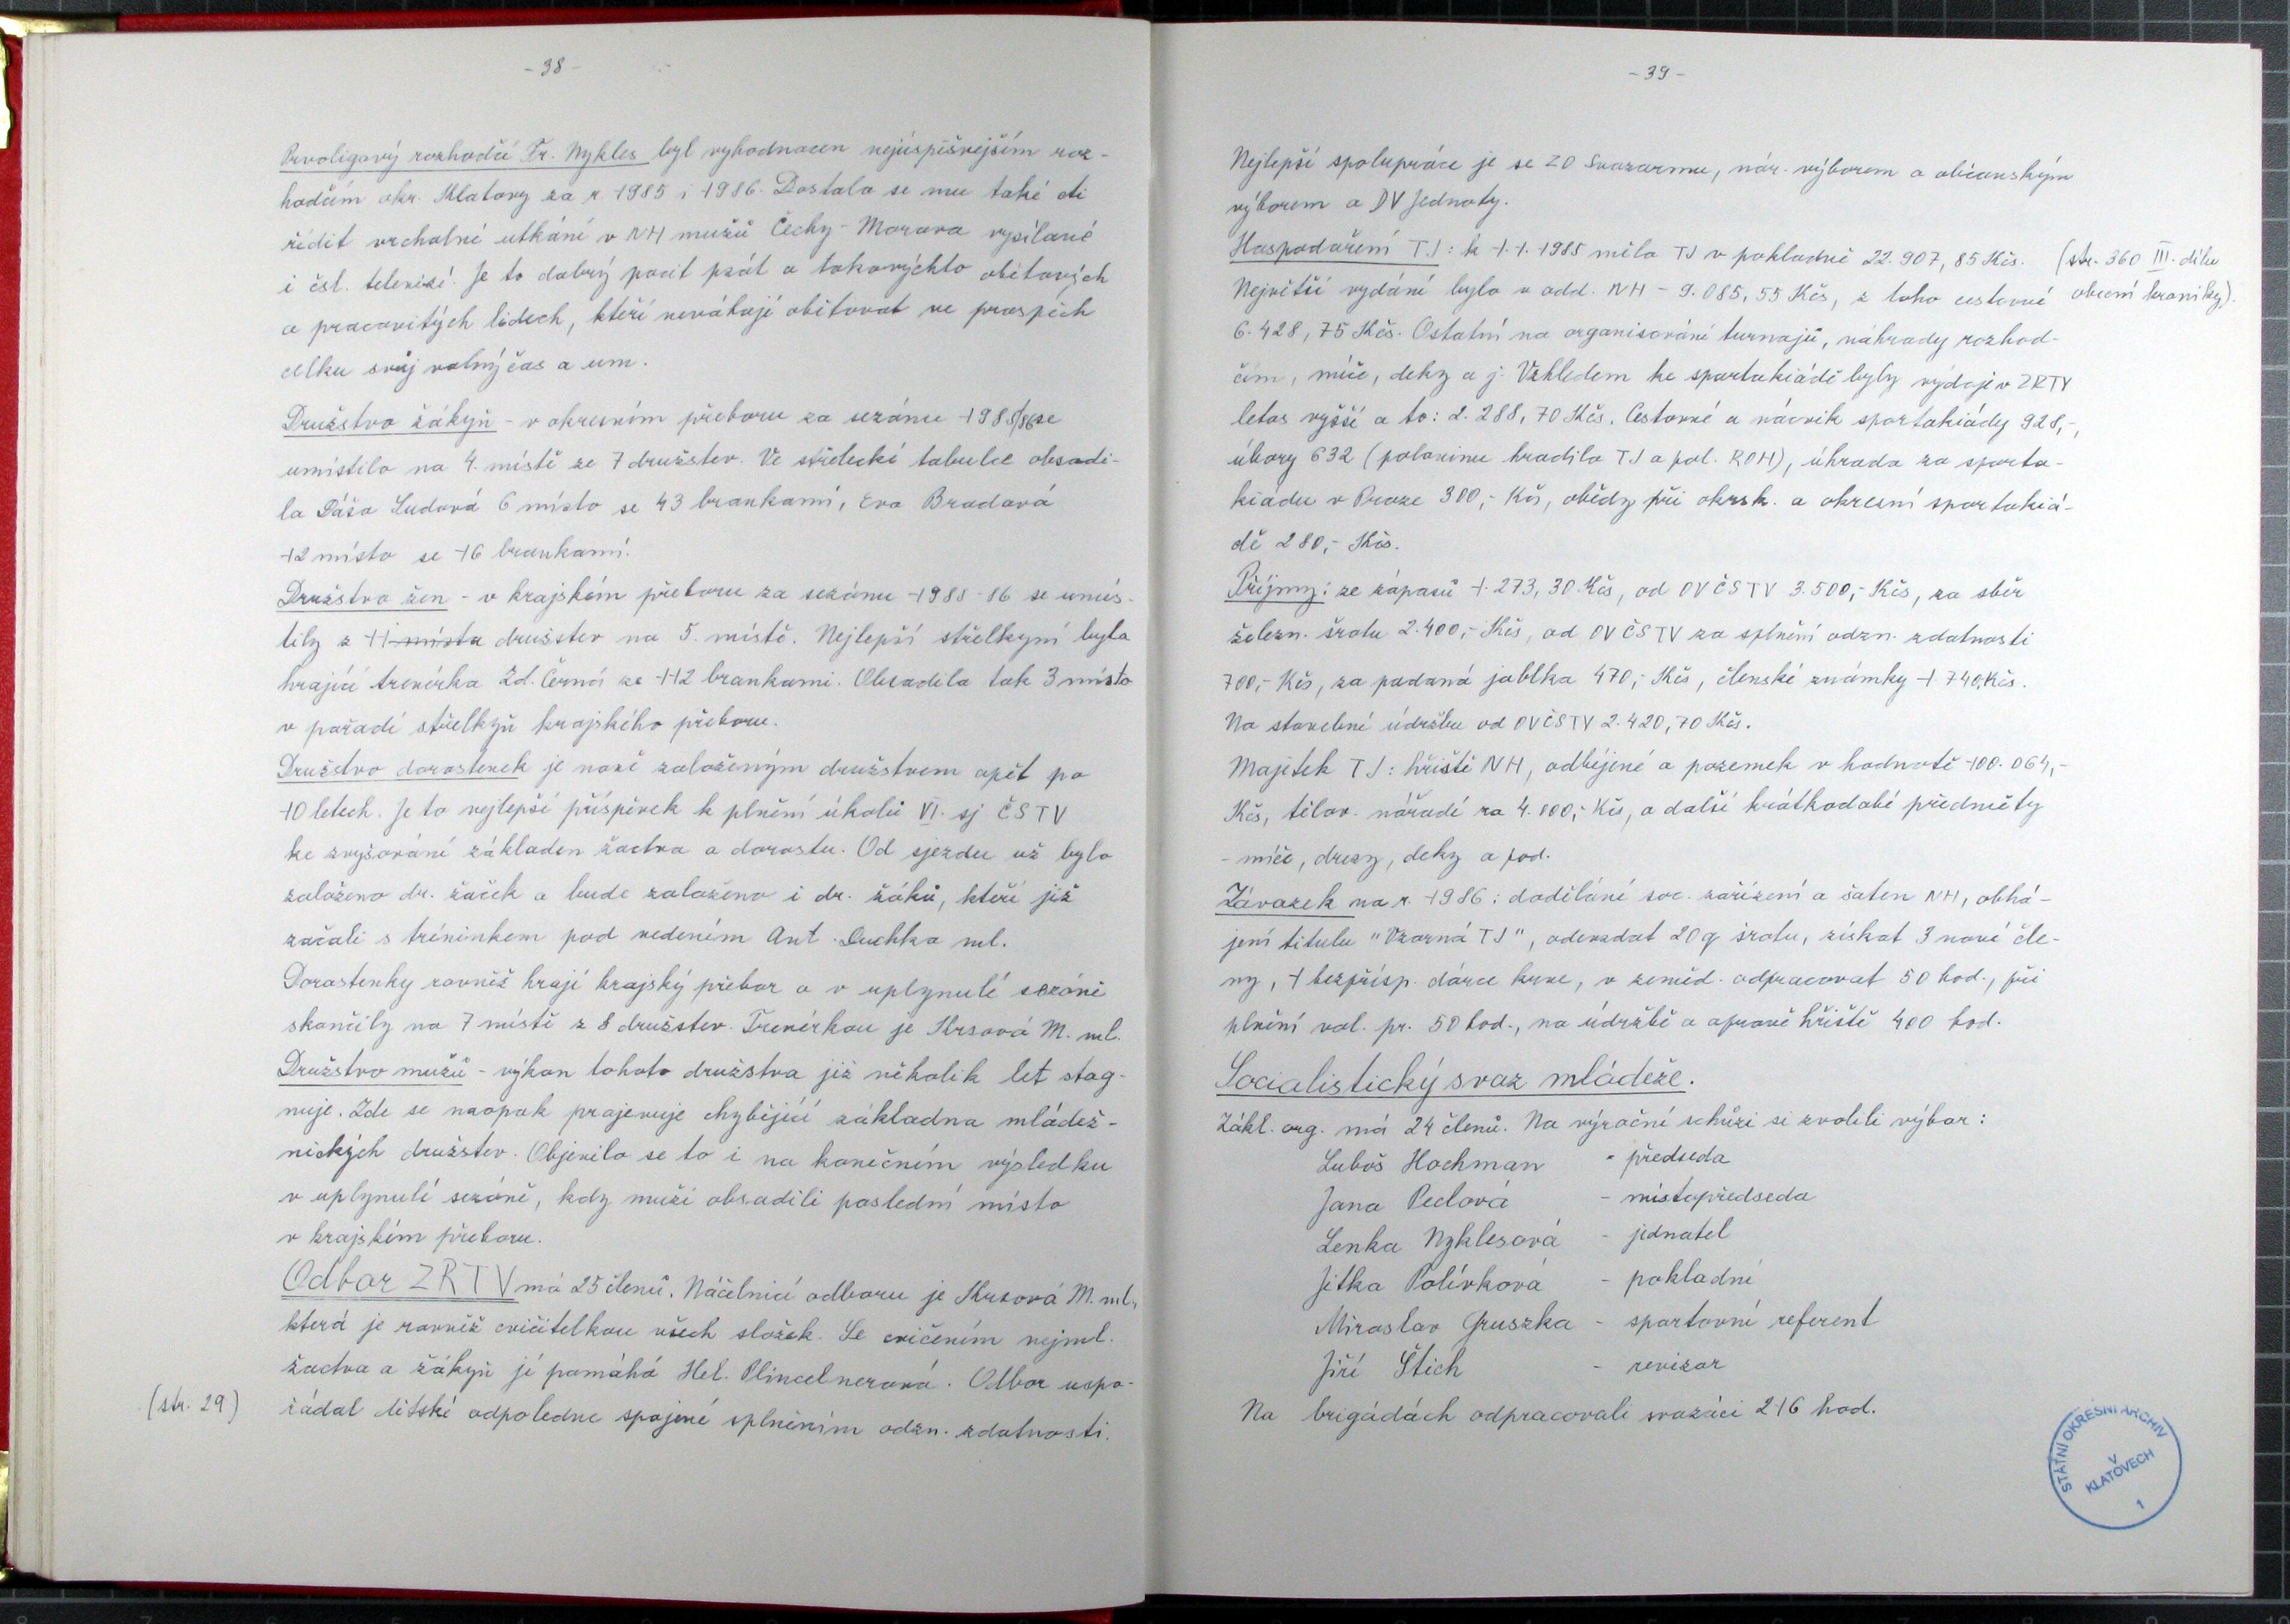 - 38 -
Prvoligový rozhodčí Fr. Nykles byl vyhodnocen nejúspěšnějším roz-
hodčím okr. Klatovy za r. 1985 i 1986. Dostalo se mu také cti
řídit vrcholné utkání v NH mužů Čechy - Morava vysílané
i čsl. televizí. Je to dobrý pocit psát o takovýchto obětavých
a pracovitých lidech, kteří neváhají obětovat ve prospěch
celku svůj volný čas a um.
Družstvo žákyň - v okresním přeboru za sezónu 1985/86 se
umístilo na 4. místě ze 7 družstev. Ve střelecké tabulce obsadi-
la Dáša Ludová 6 místo se 43 brankami, Eva Bradová
12 místo se 16 brankami.
Družstvo žen - v krajském přeboru za sezónu 1985-86 se umís-
tily z 11 místa družstev na 5. místě. Nejlepší střelkyní byla
hrající trenérka Zd. Černá se 112 brankami. Obsadila tak 3 místo
v pořadí střelkyň krajského přeboru.
Družstvo dorostenek je nově založeným družstvem opět po
10 letech. Je to nejlepší příspěvek k plnění úkolů VI. sj ČSTV
ke zvyšování základen žactva a dorostu. Od sjezdu už bylo
založeno dr. žaček a bude založeno i dr. žáků, kteří již
začali s tréninkem pod vedením Ant. Duchka ml.
Dorostenky rovněž hrají krajský přebor a v uplynulé sezóně
skončily na 7 místě z 8 družstev. Trenérkou je Krsová M. ml.
Družstvo mužů - výkon tohoto družstva již několik let stag-
nuje. Zde se naopak projevuje chybějící základna mládež-
nických družstev. Objevilo se to i na konečném výsledku
v uplynulé sezóně, kdy muži obsadili poslední místo
v krajském přeboru.
Odbor ZRTV má 25 členů. Náčelnicí odboru je Krsová M. ml.,
která je rovněž cvičitelkou všech složek. Se cvičením nejml.
žactva a žákyň jí pomáhá Hel. Plincelnerová. Odbor uspo-
(str. 29) řádal dětské odpoledne spojené splněním odzn. zdatnosti.
- 39 -
Nejlepší spolupráce je se ZO Svazarmu, nár. výborem a občanským
výborem a DV Jednoty.
Hospodaření TJ: k 1.1.1985 měla TJ v pokladně 22.907,85 Kčs. (str. 360 III. dílu
Největší vydání bylo v odd. NH - 9.085,55 Kčs, z toho cestovné obecní kroniky).
6.428,75 Kčs. Ostatní na organisování turnajů, náhrady rozhod-
čím, míče, deky a j. Vzhledem ke spartakiádě byly výdaje v ZRTV
letos vyšší a to: 2.288,70 Kčs. Cestovné a nácvik spartakiády 928,-,
úbory 632 (polovinu hradila TJ a pol. ROH), úhrada za sparta-
kiádu v Praze 300,- Kčs, obědy při okrsk. a okresní spartakiá-
dě 280,- Kčs.
Příjmy: ze zápasů 1.273,30 Kčs, od OV ČSTV 3.500,- Kčs, za sběr
železn. šrotu 2.400,- Kčs, od OV ČSTV za splnění odzn. zdatnosti
700,- Kčs, za padaná jablka 470,- Kčs, členské známky 1.740,Kčs.
Na stavební údržbu od OVČSTV 2.420,70 Kčs.
Majetek TJ: hřiště NH, odbíjené a pozemek v hodnotě 100.064,-
Kčs, tělov. nářadí za 4.800,- Kčs, a další krátkodobé předměty
- míče, dresy, deky a pod.
Závazek na r. 1986: dodělání soc. zařízení a šaten NH, obhá-
jení titulu "Vzorná TJ", odevzdat 20 q šrotu, získat 3 nové čle-
ny, 1 bezpřísp. dárce krve, v zeměd. odpracovat 50 hod., při
plnění vol. pr. 50 hod., na údržbě a opravě hřiště 400 hod.
Socialistický svaz mládeže.
Zákl. org. má 24 členů. Na výroční schůzi si zvolili výbor:
Luboš Hochman - předseda
Jana Peclová - místopředseda
Lenka Nyklesová - jednatel
Jitka Polívková - pokladní
Miroslav Gruszka - sportovní referent
Jiří Štich - revizor
Na brigádách odpracovali svazáci 216 hod.
STÁTNÍ OKRESNÍ ARCHIV
V
KLATOVECH
1